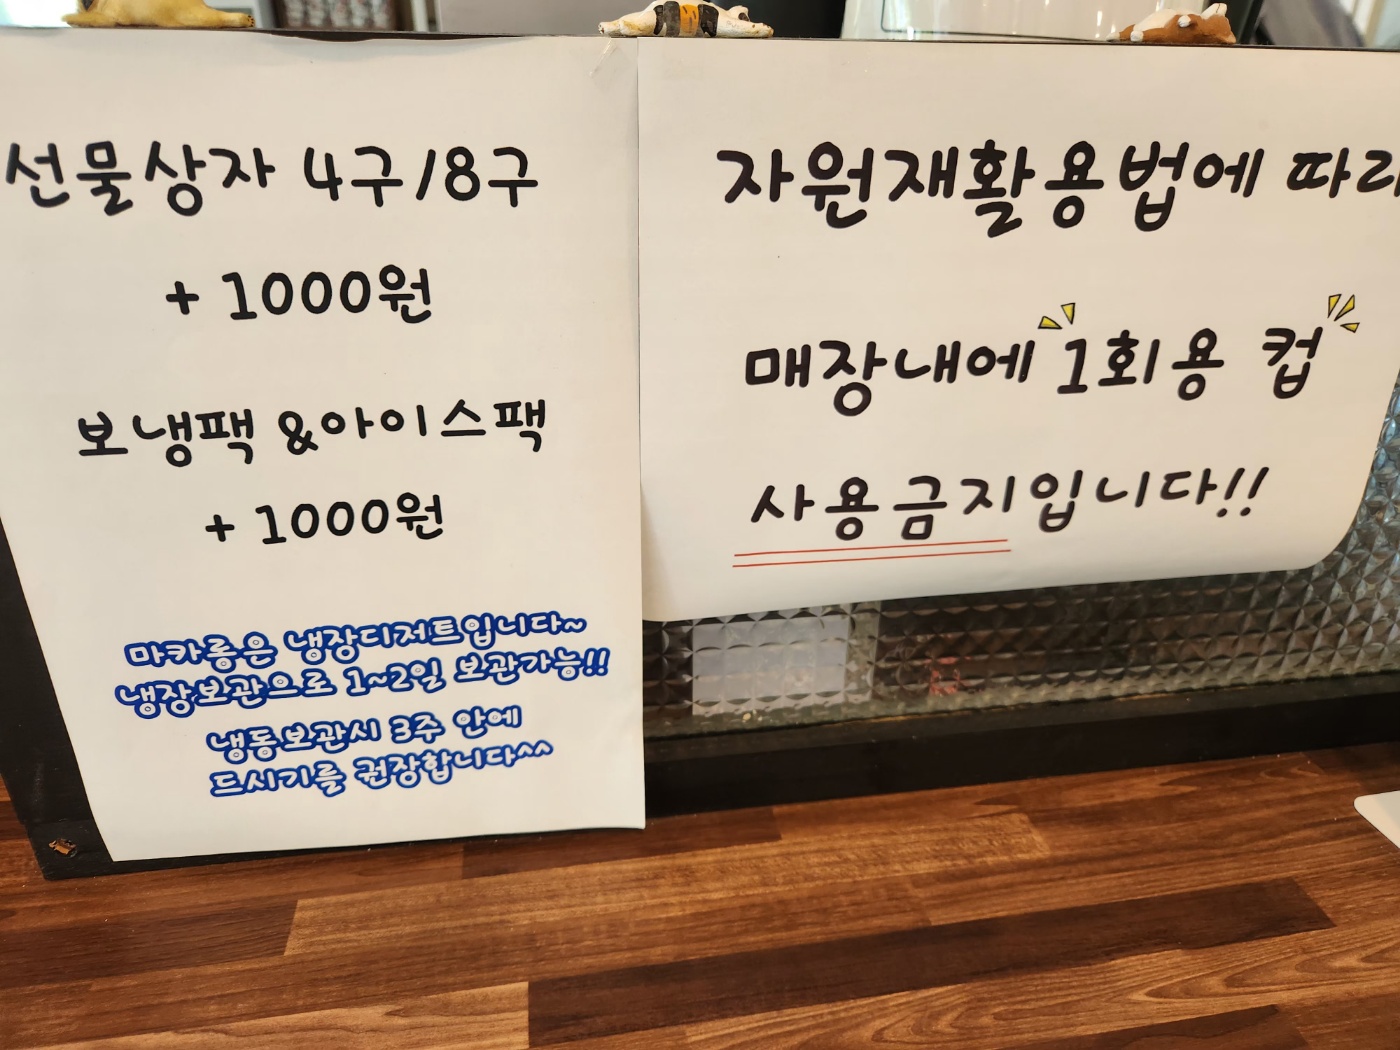 선물상자 4구/8구
+ 1000원
보냉팩 &아이스팩
+ 1000원
마카롱은 냉장디저트입니다~
냉장보관으로 1~2일 보관가능!!
냉동보관시 3주 안에
드시기를 권장합니다^^
자원재활용법에 따라
매장내에 1회용 컵
사용금지입니다!!